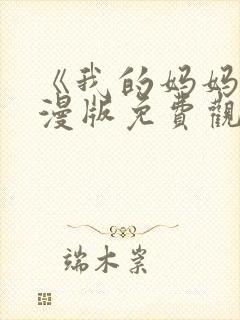 《我的妈妈
漫版免費觀
端木崇